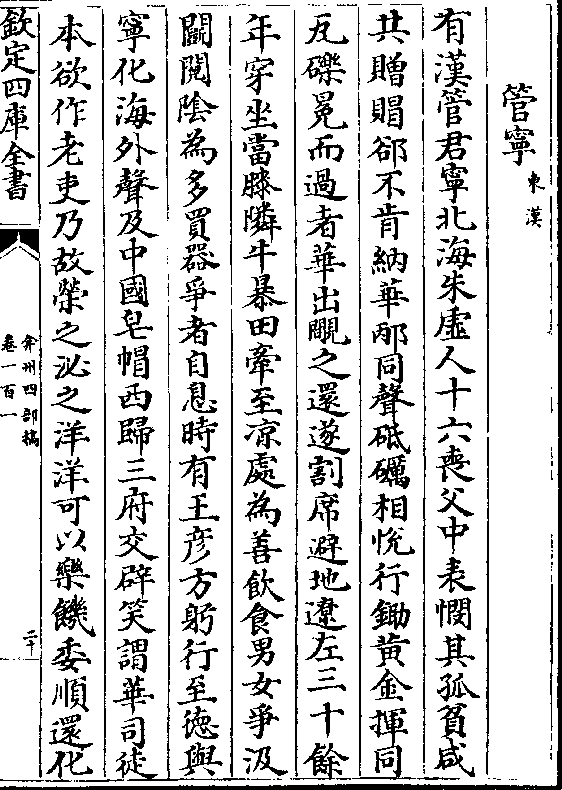 管寧東漢
有漢管君寧北海朱虛人十六喪父中表憫其孤貧咸
共贈賵郤不肯納華邴同聲砥礪相悅行鋤黃金揮同
瓦礫冕而過者華出覵之還遂割席避地遼左三十餘
年穿坐當膝隣牛暴田牽至凉處為善飲食男女爭汲
鬭鬩陰為多買器爭者自息時有王彦方躬行至德與
寧化海外聲及中國皂帽西歸三府交辟笑謂華司徒
本欲作老吏乃故榮之泌之洋洋可以樂饑委順還化
欽定四庫全書
弇州四部稿
卷一百一
二十